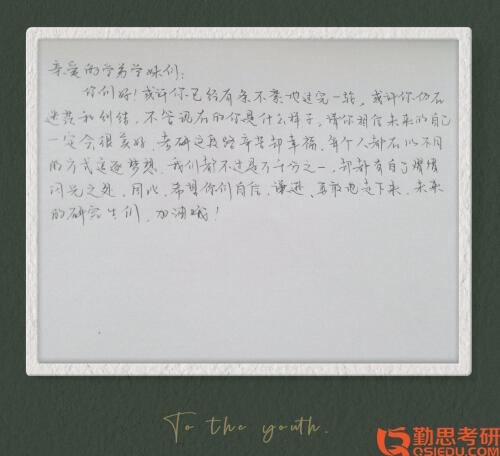 亲爱的学弟学妹们:
你们好!或许你已经有条不紊地过完一轮,或许你仍在
迷茫和纠结,不管现在的你是什么样子,请你相信未来的自己
一定会很美好.考研这段路辛苦却幸福,每个人都在以不同
的方式追逐梦想.我们都不过是万千分之一,却都有自己熠熠
闪光之处.因此,希望你们自信、谦逊、勇敢地走下来.未来
的研究生们,加油哦!
To the youth.
勤思考研
QSIEDU.COM